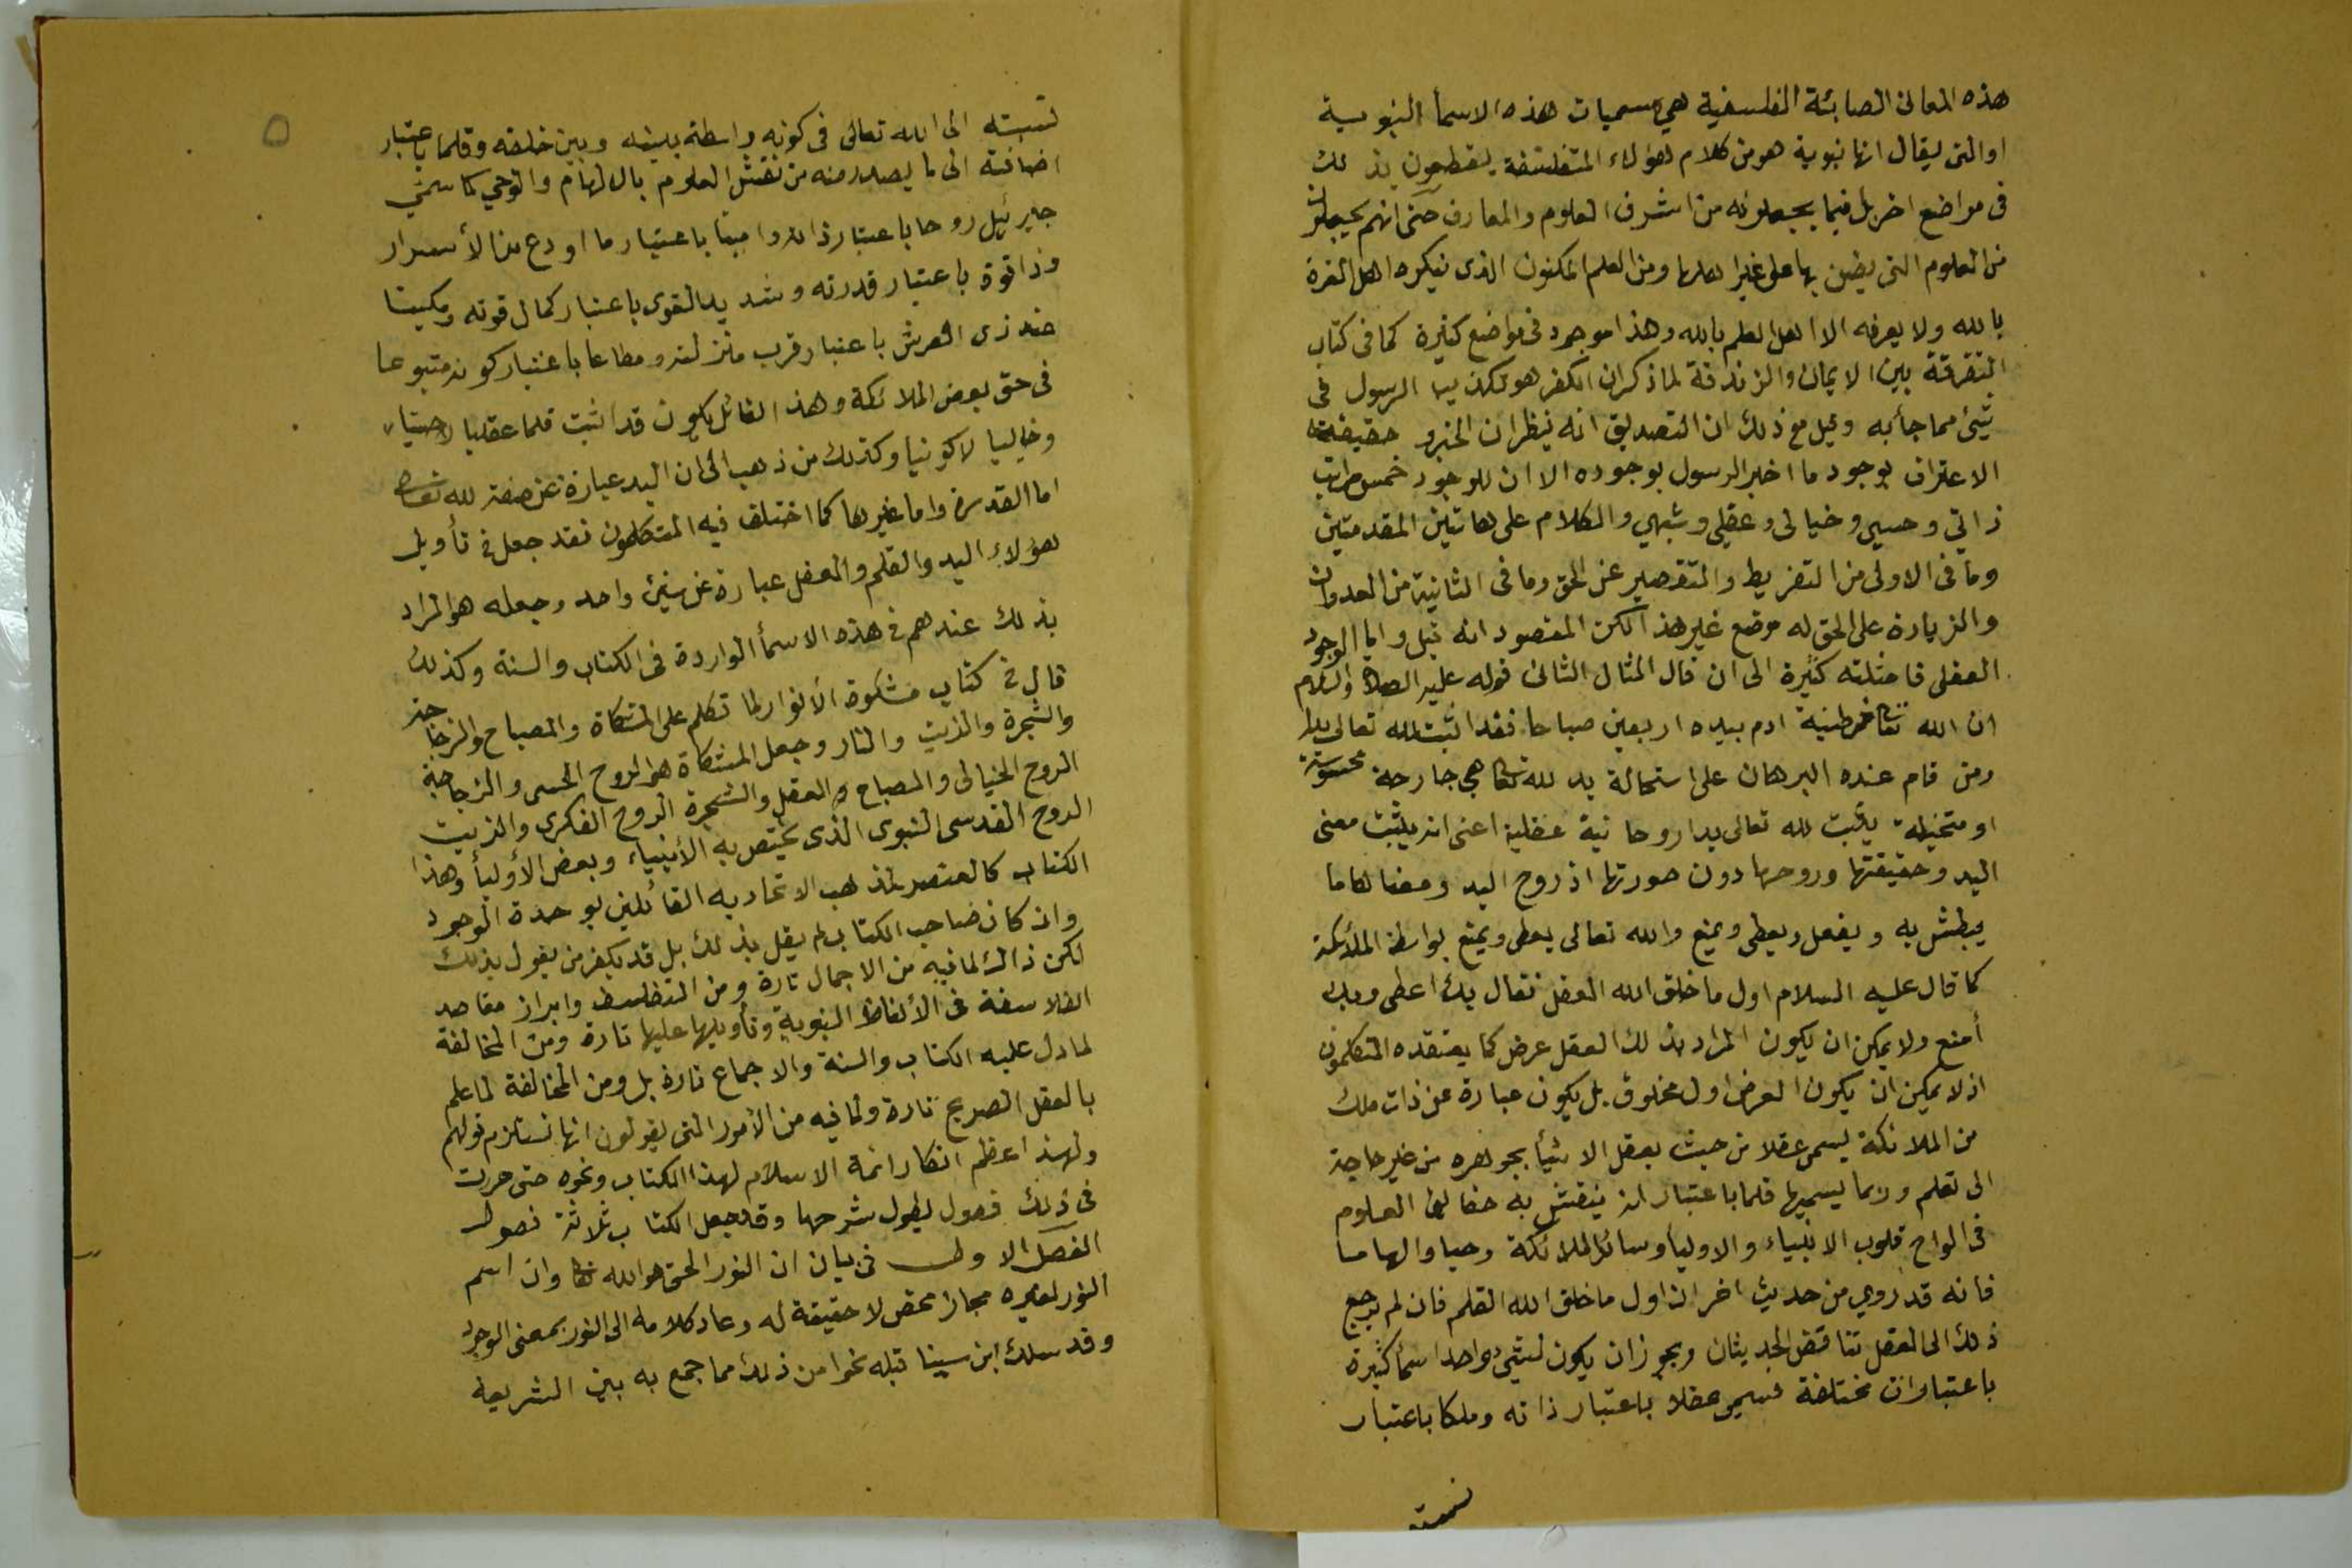 هذه المعانى الصابئة الفلسفية هي مسميات هذه الاسما النبوية
او التى يقال انها نبوية هو من كلام هؤلاء المتفلسفة يقطعون بذلك
فى مواضع اخر بل فيما يجعلونه من اشرف العلوم والمعارف حتى انهم يجعلون
من العلوم التى يضن بها على غير اهلها ومن العلم المكنون الذى ينكره اهل الغرة
بالله ولا يعرفه الا اهل العلم بالله وهذا موجود فى مواضع كثيرة كما فى كتاب
التفرقة بين الايمان والزندقة لما ذكر ان الكفر هو تكذيب الرسول فى
شئ مما جأ به مع ذلك ان التصديق انه ينظر ان الخبر و حقيقته
الاعتراف بوجود ما اخبر الرسول بوجوده الا ان للوجود خمس مراتب
ذاتي وحسي وخيالى وعقلي وشبهي والكلام على هاتين المقدمتين
وما فى الاولى من التفريط والتقصير عن الحق وما فى الثانية من العدوان
والزيادة على الحق له موضع غير هذا لكن المقصود انه قيل واما الوجود
العقلى فامثلته كثيرة الى ان قال المثال الثانى قوله عليه الصلاة والسلام
ان الله تعا خمر طينة ادم بيده اربعين صباحا فقد اثبت لله تعالى يدا
ومن قام عنده البرهان على استحالة يد لله تعا هى جارحة محسوسة
او متخيلة يثبت لله تعالى يدا روحانية عقلية اعنى انه يثبت معنى
اليد وحقيقتها وروحها دون صورتها اذ روح اليد ومعناها ما
يبطش به ويفعل ويعطى ويمنع والله تعالى يعطى ويمنع بواسطة الملائكة
كما قال عليه السلام اول ما خلق الله العقل فقال بك اعطى وبك
أمنع ولا يمكن ان يكون المراد بذلك العقل عرض كما يعتقده المتكلمون
اذ لا يمكن ان يكون العرض اول مخلوق بل يكون عبارة عن ذات ملك
من الملائكة يسمى عقلا من حيث يعقل الاشيأ بجوهره من غير حاجة
الى تعلم وربما يسميها قلما باعتبار انه ينقش به حقائق العلوم
فى الواح قلوب الانبياء والاوليا وسائر الملائكة وحيا والهاما
فانه قد روي من حديث اخر ان اول ما خلق الله القلم فان لم يرجع
ذلك الى العقل تناقض الحديثان ويجوز ان يكون لشئ واحد اسمأ كثيرة
باعتبارات مختلفة فسمي عقلا باعتبار ذاته وملكا باعتبار
نسبته
نسبته الى الله تعالى فى كونه واسطة بينه وبين خلقه وقلما باعتبار
اضافته الى ما يصدر منه من نقش العلوم بالالهام والوحي كما سمي
جبرئيل روحا باعتبار ذاته وامينا باعتبار ما اودع من الأسرار
وذا قوة باعتبار قدرته وشديد القوى باعتبار كمال قوته ومكينا
عند ذى العرش باعتبار قرب منزلته ومطاعا باعتبار كونه متبوعا
فى حق بعض الملائكة وهذا القائل يكون قد اثبت قلما عقليا لا حسيا
وخياليا لا كونيا وكذلك من ذهب الى ان اليد عبارة عن صفة لله تعالى
اما القدرة واما غيرها كما اختلف فيه المتكلمون فقد جعل فى تأويل
هؤلاء اليد والقلم والعقل عبارة عن شئ واحد وجعله هو المراد
بذلك عندهم فى هذه الاسمأ الواردة فى الكتاب والسنة وكذلك
قال فى كتاب مشكوة الأنوار لما تكلم على المشكاة والمصباح والزجاجة
والشجرة والزيت والنار وجعل المشكاة هو الروح الحسى والزجاجة
الروح الخيالى والمصباح والعقل والشجرة الروح الفكرى والزيت
الروح القدسى النبوى الذى يختص به الأنبياء وبعض الأوليأ وهذا
الكتاب كالعنصر لمذهب الاتحادية القائلين بوحدة الوجود
وان كان صاحب الكتاب لم يقل بذلك بل قد يكفر من يقول بذلك
لكن ذاك لما فيه من الاجمال تارة ومن التفلسف وابراز مقاصد
الفلاسفة فى الألفاظ النبوية وتأويلها عليها تارة ومن المخالفة
لما دل عليه الكتاب والسنة والاجماع تارة بل ومن المخالفة لما علم
بالعقل الصريح تارة ولما فيه من الأمور التى يقولون انها تستلزم قولهم
ولهذا عظم انكار ائمة الاسلام لهذا الكتاب ونحوه حتى جرت
فى ذلك فصول يطول شرحها وقد جعل الكتاب ثلاثة فصول
الفصل الاول فى بيان ان النور الحق هو الله تعا وان اسم
النور لغيره مجاز محض لا حقيقة له وعاد كلامه الى النور بمعنى الوجود
وقد سلك ابن سينا قبله نحوا من ذلك مما جمع به بين الشريعة